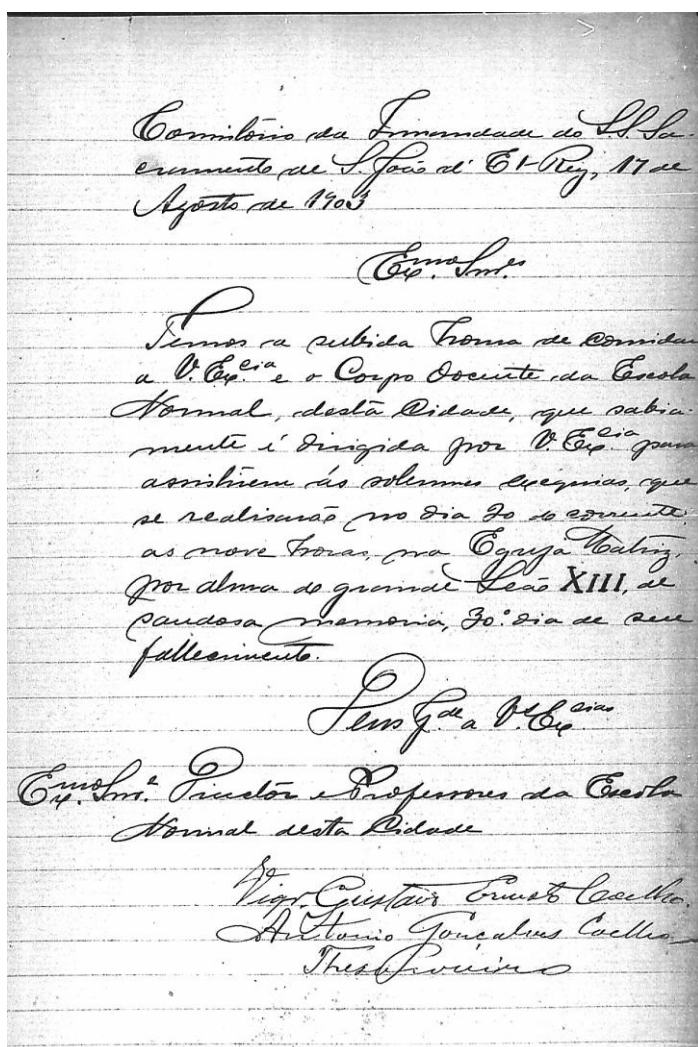 Consistorio da Irmandade do S.S. Sa-
cramento de S. João d' El-Rey, 17 de
Agosto de 1903
Exmos. Snres.
Temos a subida honra de convidar
a V. Excia e o Corpo Docente da Escola
Normal, desta Cidade, que sabia-
mente é dirigida por V. Excia para
assistirem ás solemnes exequias, que
se realisarão no dia 20 do corrente,
as nove horas, na Egreja Matriz,
por alma do grande Leão XIII, de
saudosa memoria, 30º. dia de seu
fallecimento.
Deus Gde a V.as Excias
Exmo. Snr. Director e Professores da Escola
Normal desta Cidade
Vigro. Gustavo Ernesto Coelho.
Antonio Gonçalves Coelho
Thesoureiro